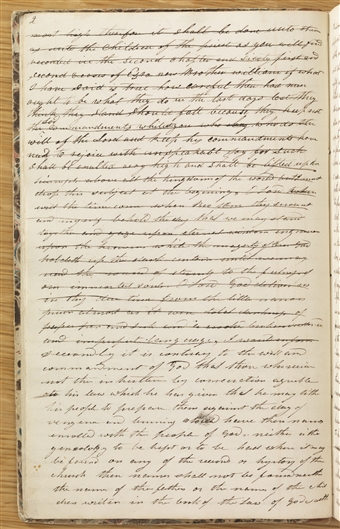 2
most high therefore it shall be done unto them
as unto the children of the priest as you will find
recorded in the second chapter and sixty first and
second verses of Ezra now Brother William if what
I have said is true how careful then had men
ought to be what they do in the last days lest they
think they stand should fall because they
keep the Commandments whilst you who do the
will of the Lord and keep his commandments have
need to rejoice with unspeakable joy for such
shall be exalted very high and shall be lifted up
in triumph above all the kingdoms of the world but I must
drop this subject at the beginning Oh Lord
will the time come when Brother William thy servent
and myself behold the day that we may stand
together and gaze upon eternal wisdom engraven
upon the heavens while the majesty of our God
holdeth up the dark curtain until
the round of eternity to the fullness
our immortal souls Oh Lord God deliver us
in thy due time from the little narrow
prison almost as it were total darkness of
paper pen and ink and a crooked broken scattered
and imperfect language
secondly it is contrary to the will and
commandment of God that those who receive
not the inheritance by consecration agreeable
to his law which he has given that he may tithe
his people to prepare them against the day of
vengeance and burning should have their names
enrolled with the people of God, neither is the
geneology to be kept or to be had where it may
be found on any of the records or hystory of the
church their names shall not be found neither
the names of the fathers or the names of the
children written in the book of the Law of God